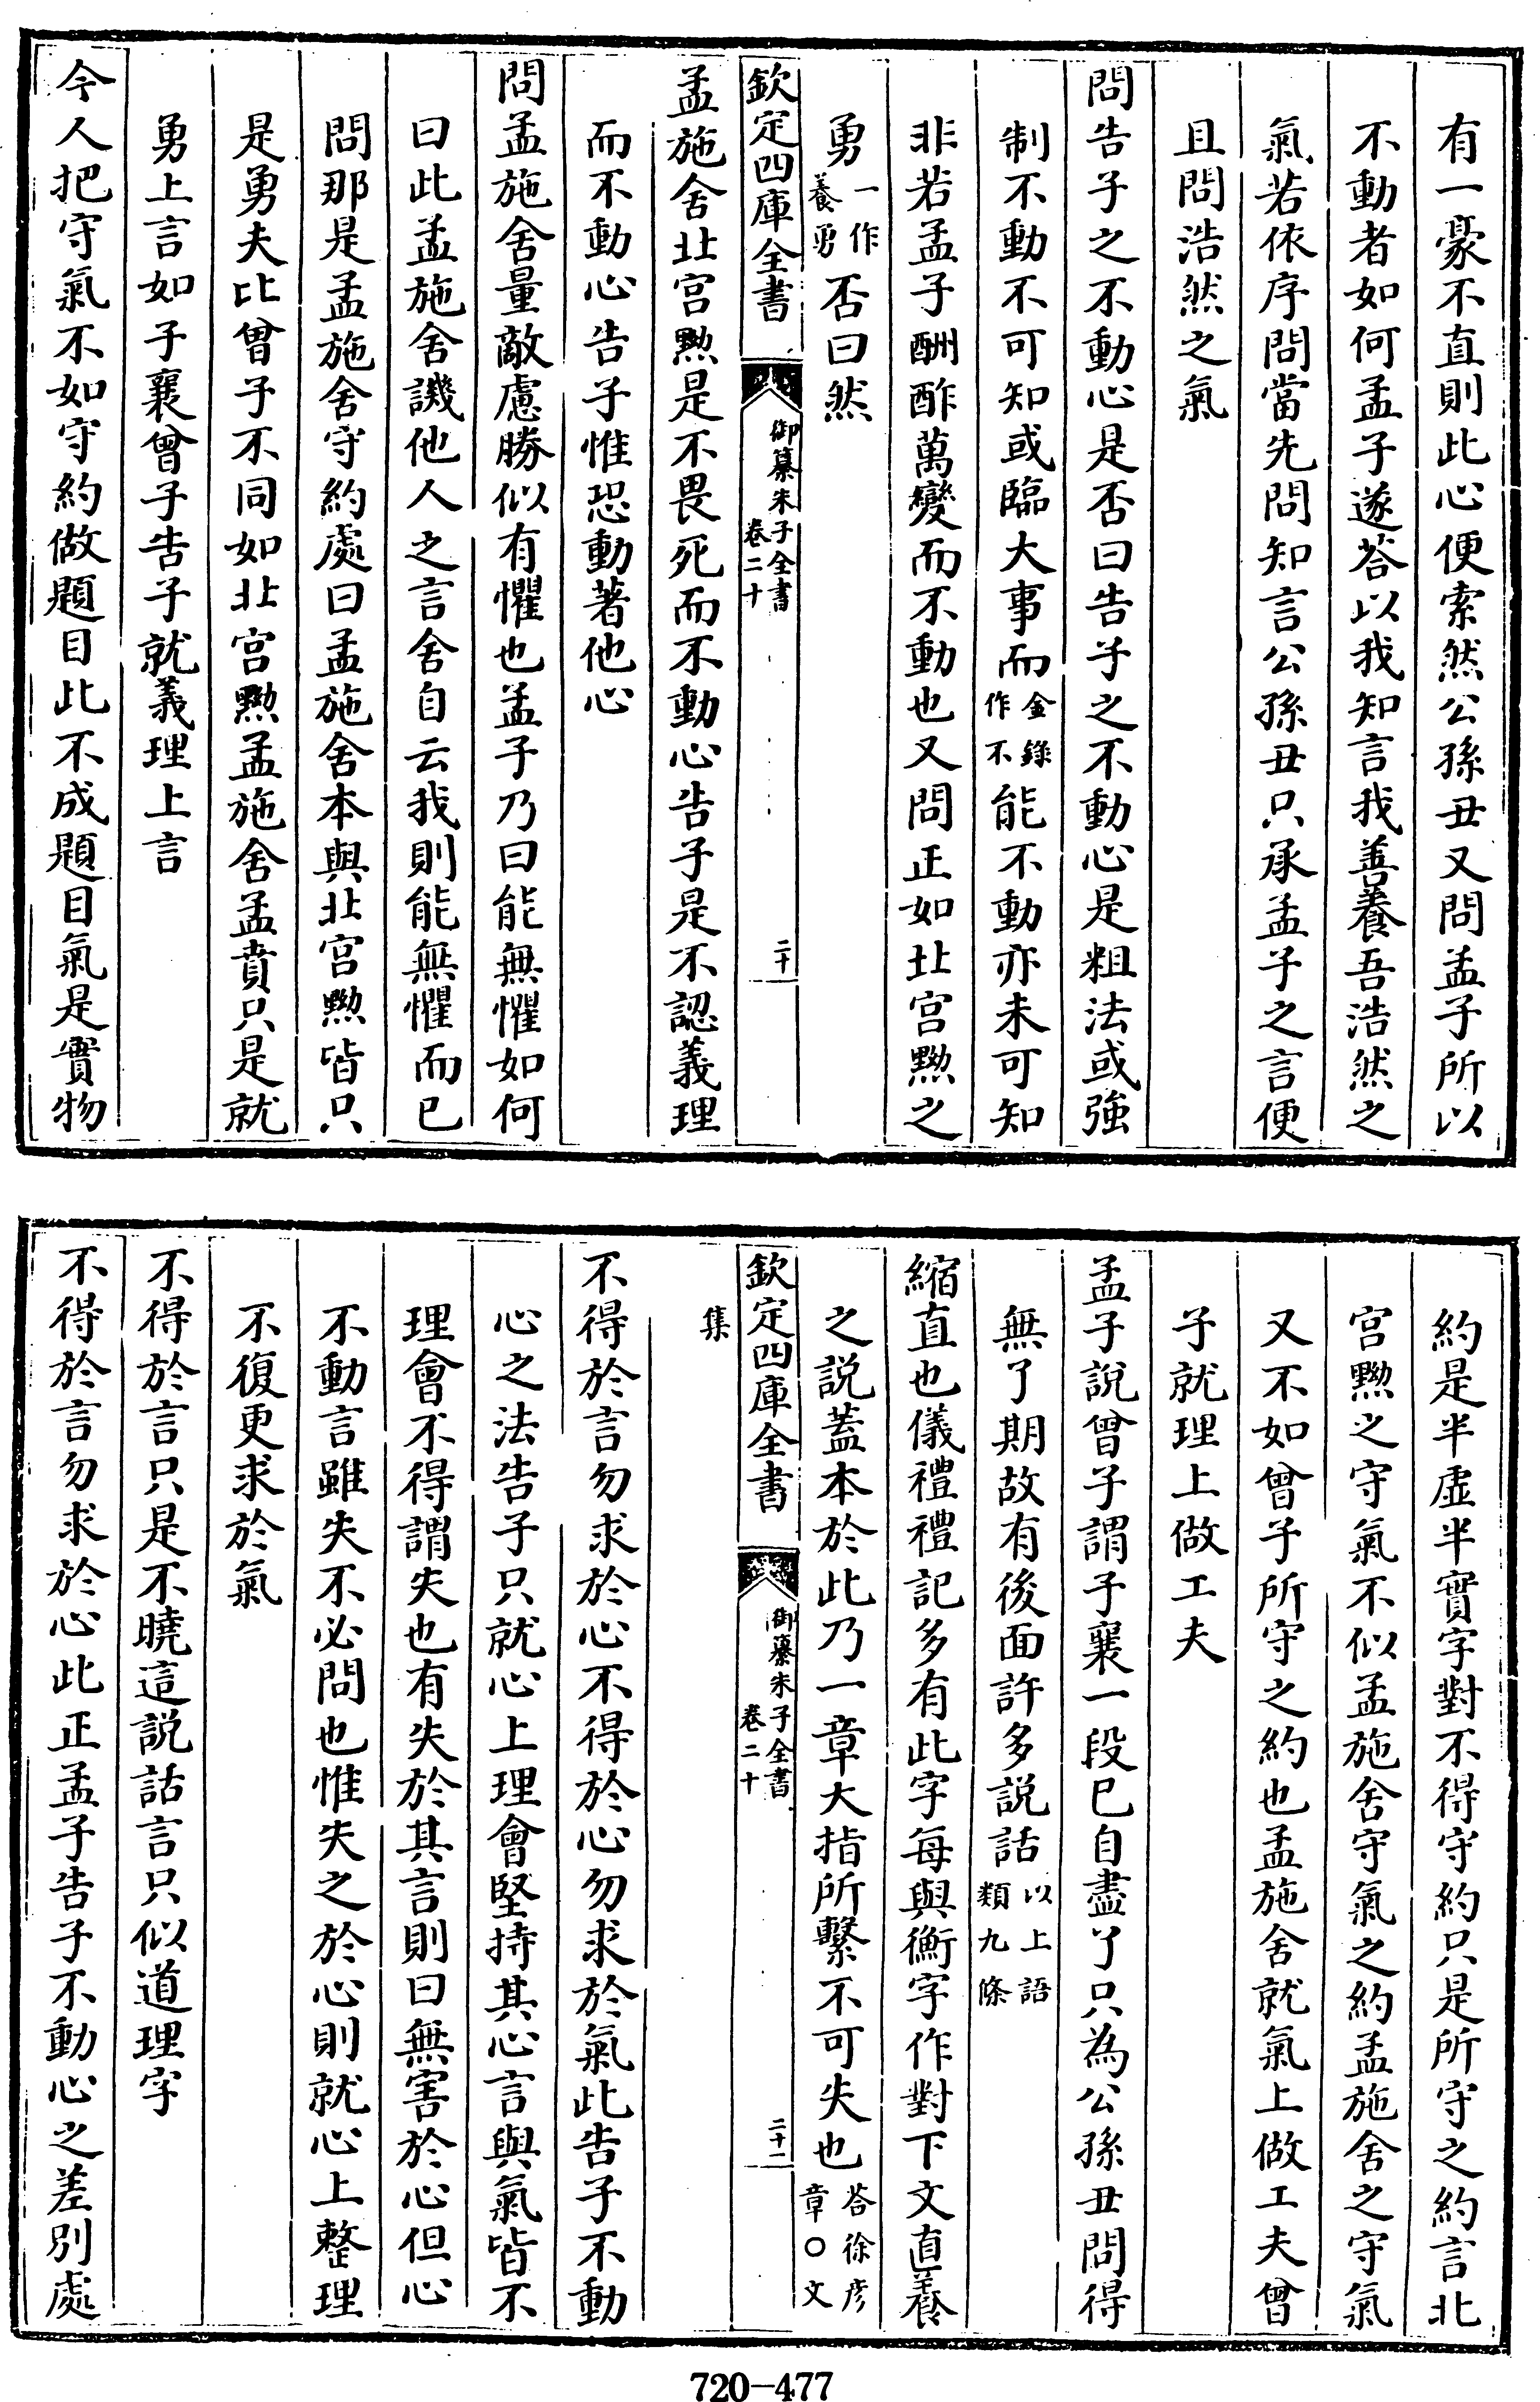 有一豪不直則此心便索然公孫丑又問孟子所以
不動者如何孟子遂荅以我知言我善養吾浩然之
氣若依序問當先問知言公孫丑只承孟子之言便
且問浩然之氣
問告子之不動心是否曰告子之不動心是粗法或強
制不動不可知或臨大事而金錄作不能不動亦未可知
非若孟子酬酢萬變而不動也又問正如北宫黝之
勇一作養勇否曰然
欽定四庫全書 御纂朱子全書 卷二十 二十
孟施舍北宫黝是不畏死而不動心告子是不認義理
而不動心告子惟恐動著他心
問孟施舍量敵慮勝似有懼也孟子乃曰能無懼如何
曰此孟施舍譏他人之言舍自云我則能無懼而已
問那是孟施舍守約處曰孟施舍本與北宫黝皆只
是勇夫比曾子不同如北宫黝孟施舍孟賁只是就
勇上言如子襄曾子告子就義理上言
今人把守氣不如守約做題目此不成題目氣是實物
約是半虛半實字對不得守約只是所守之約言北
宫黝之守氣不似孟施舍守氣之約孟施舍之守氣
又不如曾子所守之約也孟施舍就氣上做工夫曾
子就理上做工夫
孟子說曾子謂子襄一段已自盡了只為公孫丑問得
無了期故有後面許多説話以上語類九條
縮直也儀禮禮記多有此字每與衡字作對下文直養
之説蓋本於此乃一章大指所繫不可失也荅徐彦章○文
欽定四庫全書 御纂朱子全書 卷二十 二十一
集
不得於言勿求於心不得於心勿求於氣此告子不動
心之法告子只就心上理會堅持其心言與氣皆不
理會不得謂失也有失於其言則曰無害於心但心
不動言雖失不必問也惟失之於心則就心上整理
不復更求於氣
不得於言只是不曉這説話言只似道理字
不得於言勿求於心此正孟子告子不動心之差別處
720-477